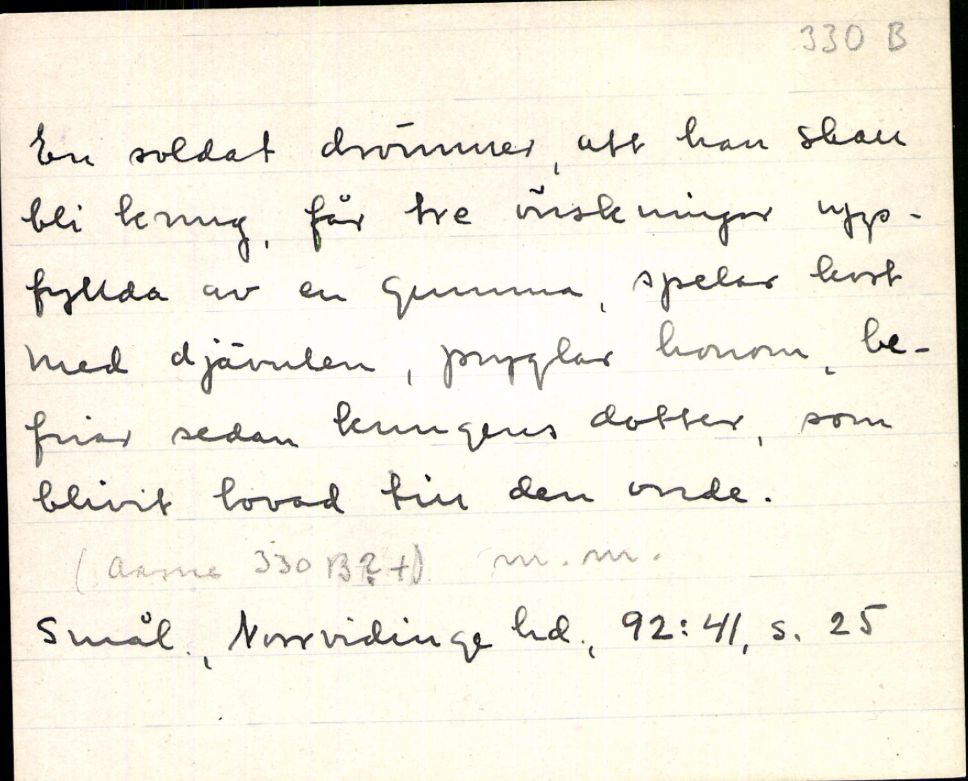 330 B
En soldat drömmer, att han skall
bli kung, får tre önskningar upp-
fyllda av en gumma, spelar kort
med djävulen, pryglar honom, be-
friar sedan kungens dotter, som
blivit lovad till den onde.
(Aarne 330 B? +) m.m.
Smål., Norrvidinge hd., 92:41, s. 25